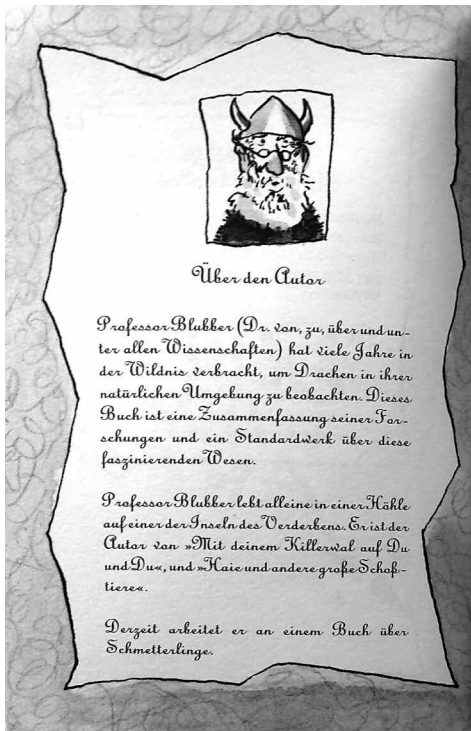 Über den Autor
Professor Blubber (Dr. von, zu, über und un-
ter allen Wissenschaften) hat viele Jahre in
der Wildnis verbracht, um Drachen in ihrer
natürlichen Umgebung zu beobachten. Dieses
Buch ist eine Zusammenfassung seiner For-
schungen und ein Standardwerk über diese
faszinierenden Wesen.
Professor Blubber lebt alleine in einer Höhle
auf einer der Inseln des Verderbens. Er ist der
Autor von »Mit deinem Killerwal auf Du
und Du«, und »Haie und andere große Schoß-
tiere«.
Derzeit arbeitet er an einem Buch über
Schmetterlinge.